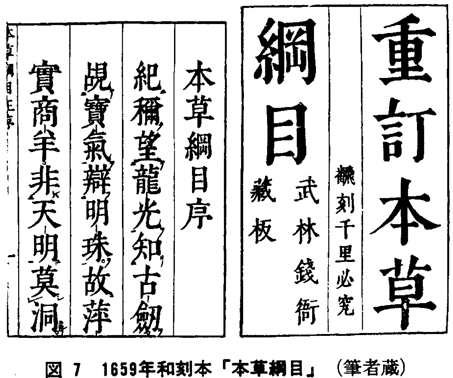 重訂本草
綱目
飜刻千里必究
武林錢衙
藏板
本草綱目序
紀稱望龍光知古劔
覘寶氣辯明珠故萍
實商羊非天明莫洞
図 7 1659年和刻本「本草綱目」(筆者蔵)